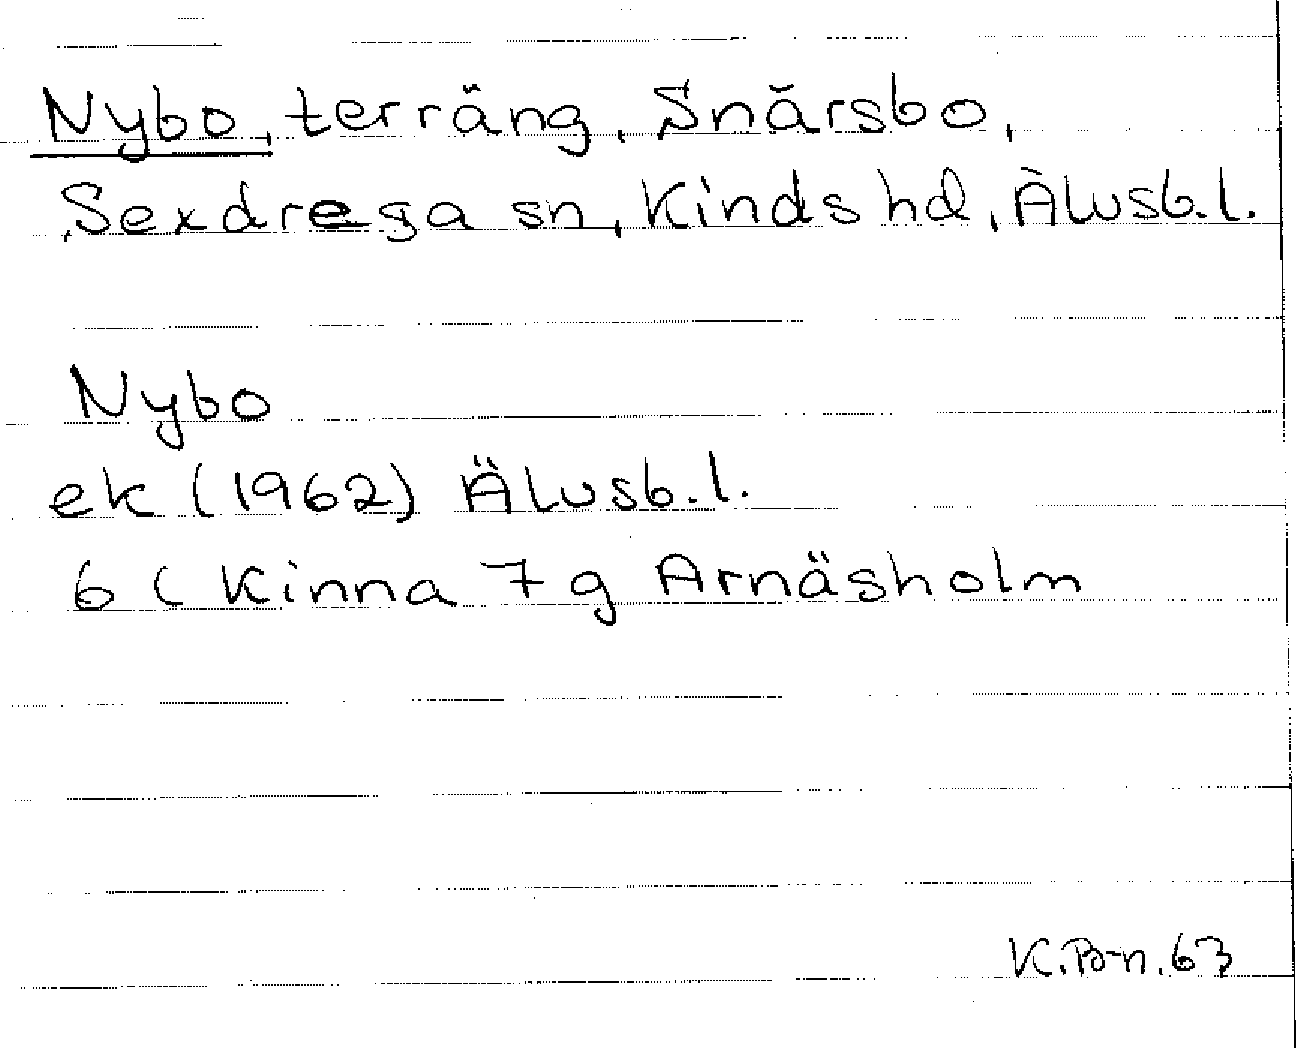 Nybo, terräng, Snärsbo,
Sexdrega sn, Kinds hd, Älvsb.l.
Nybo
ek (1962) Älvsb.l.
6 C Kinna 7 g Arnäsholm
K.B-n. 63